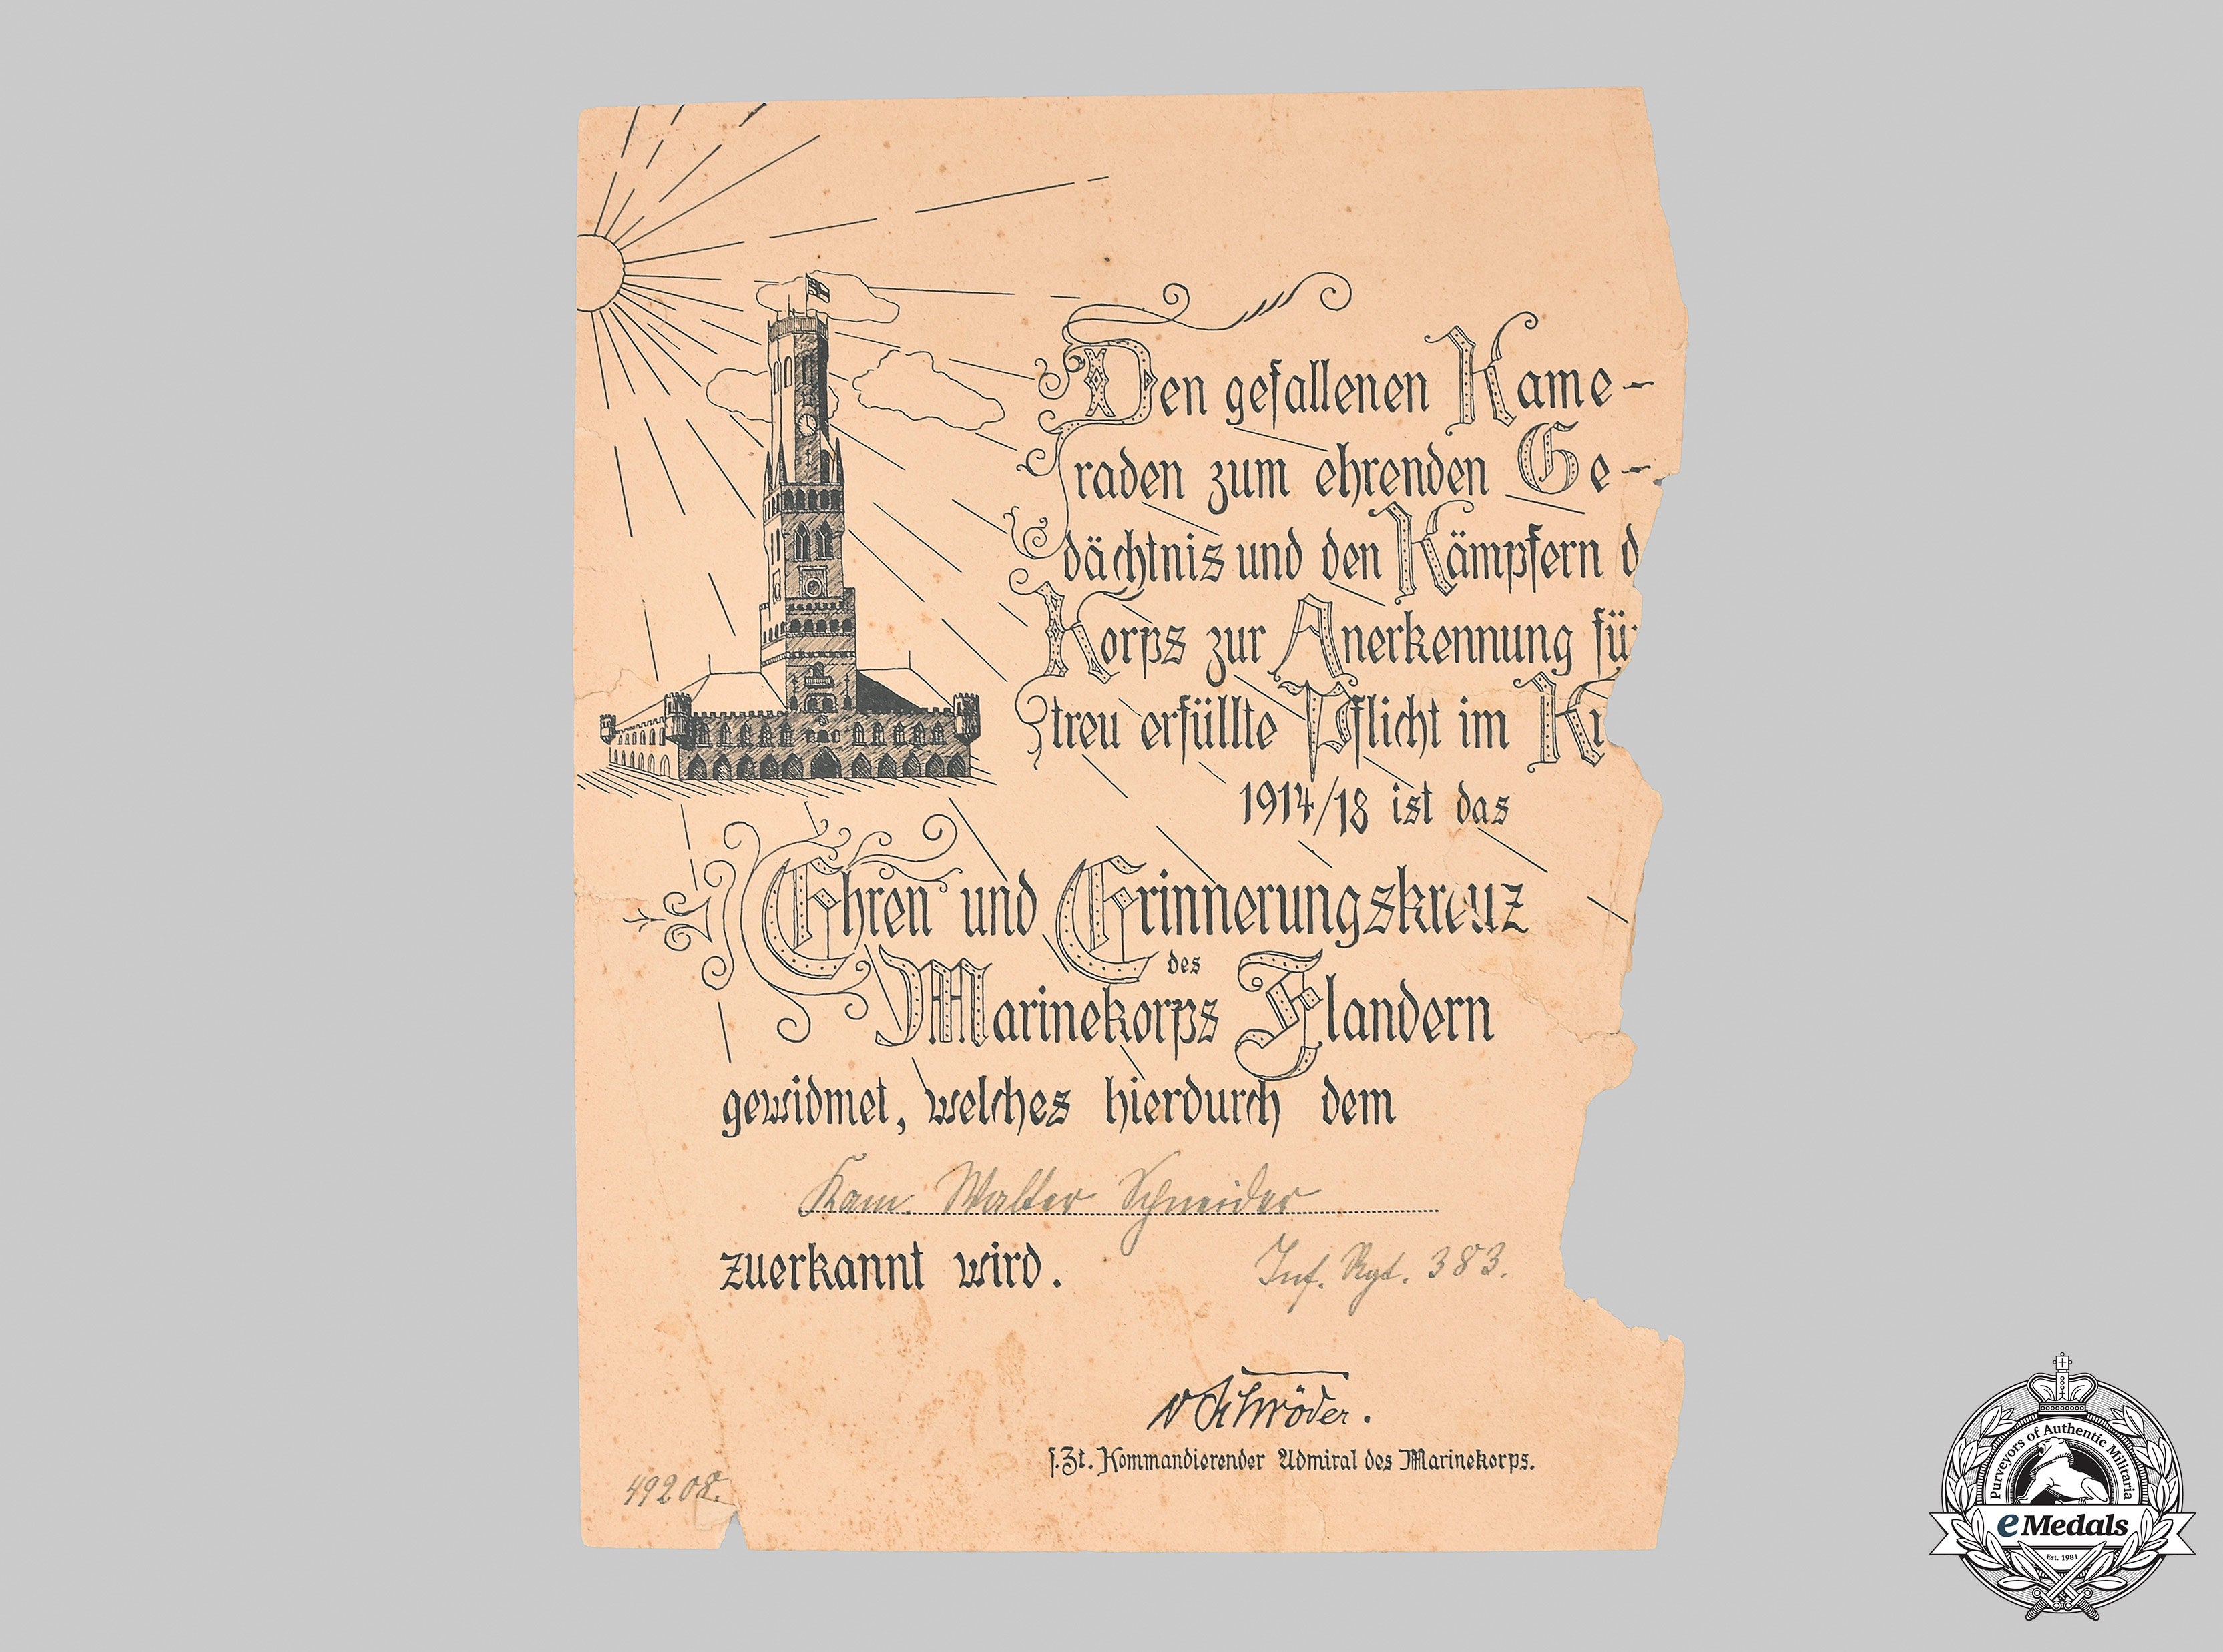 Den gefallenen Kame-
raden zum ehrenden Ge-
dächtnis und den Kämpfern d
Korps zur Anerkennung für
treu erfüllte Pflicht im K
1914/18 ist das
Ehren und Erinnerungskreuz
des
Marinekorps Flandern
gewidmet, welches hierdurch dem
Kam. Walter Schneider
zuerkannt wird.
Inf. Rgt. 383.
v Schröder.
s. Zt. Kommandierender Admiral des Marinekorps.
49208.
Purveyors of Authentic Militaria
eMedals
Est. 1981